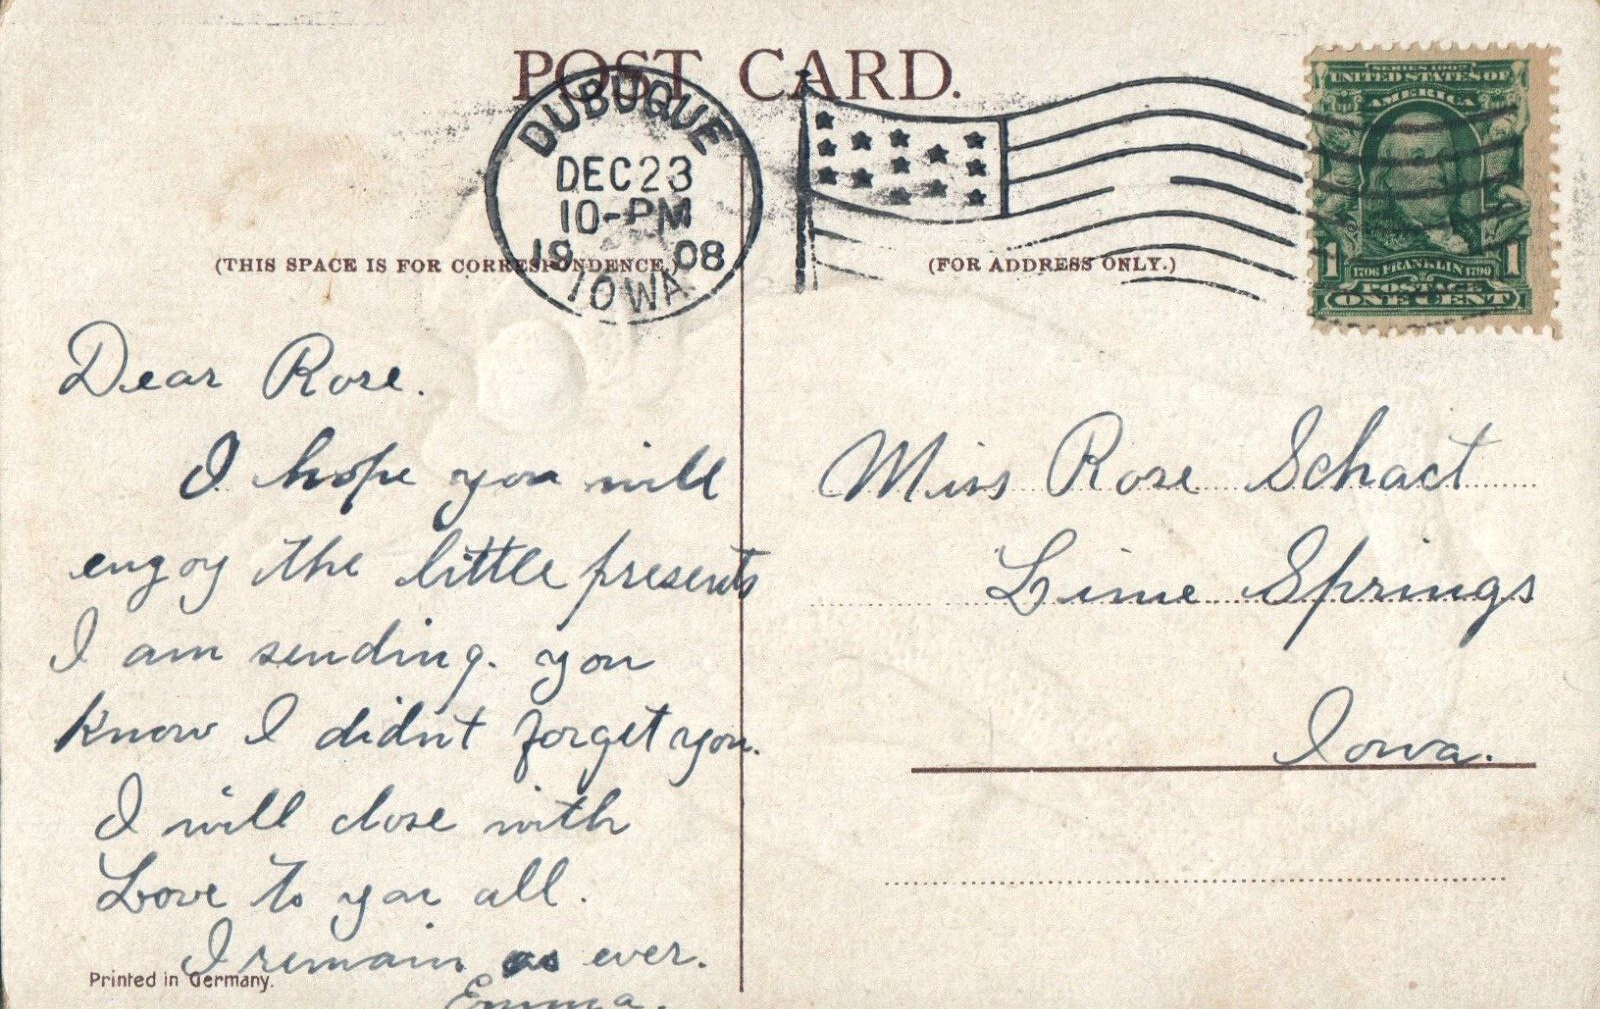 POST CARD.
DUBUQUE
DEC 23
10-PM
1908
IOWA
SERIES 1902
UNITED STATES OF
AMERICA
1706 FRANKLIN 1790
1 1
POSTAGE
ONE CENT
(THIS SPACE IS FOR CORRESPONDENCE.)
(FOR ADDRESS ONLY.)
Dear Rose.
I hope you will
enjoy the little presents
I am sending. you
know I didn't forget you.
I will close with
Love to you all.
I remain as ever.
Emma.
Miss Rose Schact
Lime Springs
Iowa.
Printed in Germany.